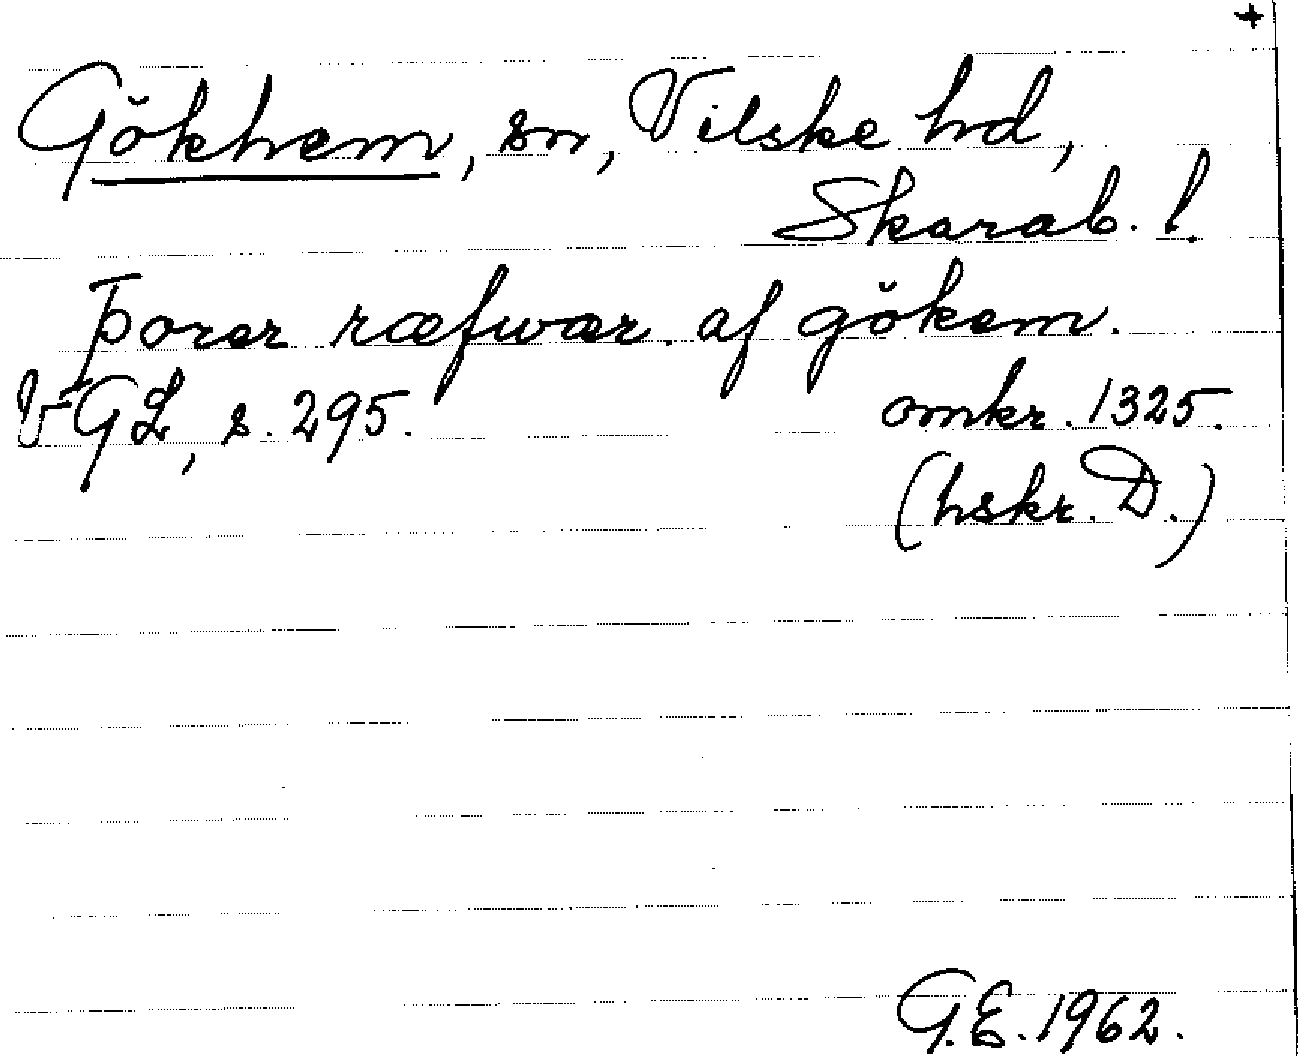 +
Gökhem, sn, Vilske hd,
Skarab. l.
Þorer ræfwær af gökem.
VGL, s. 295. omkr. 1325.
(hskr. D.)
G.E. 1962.